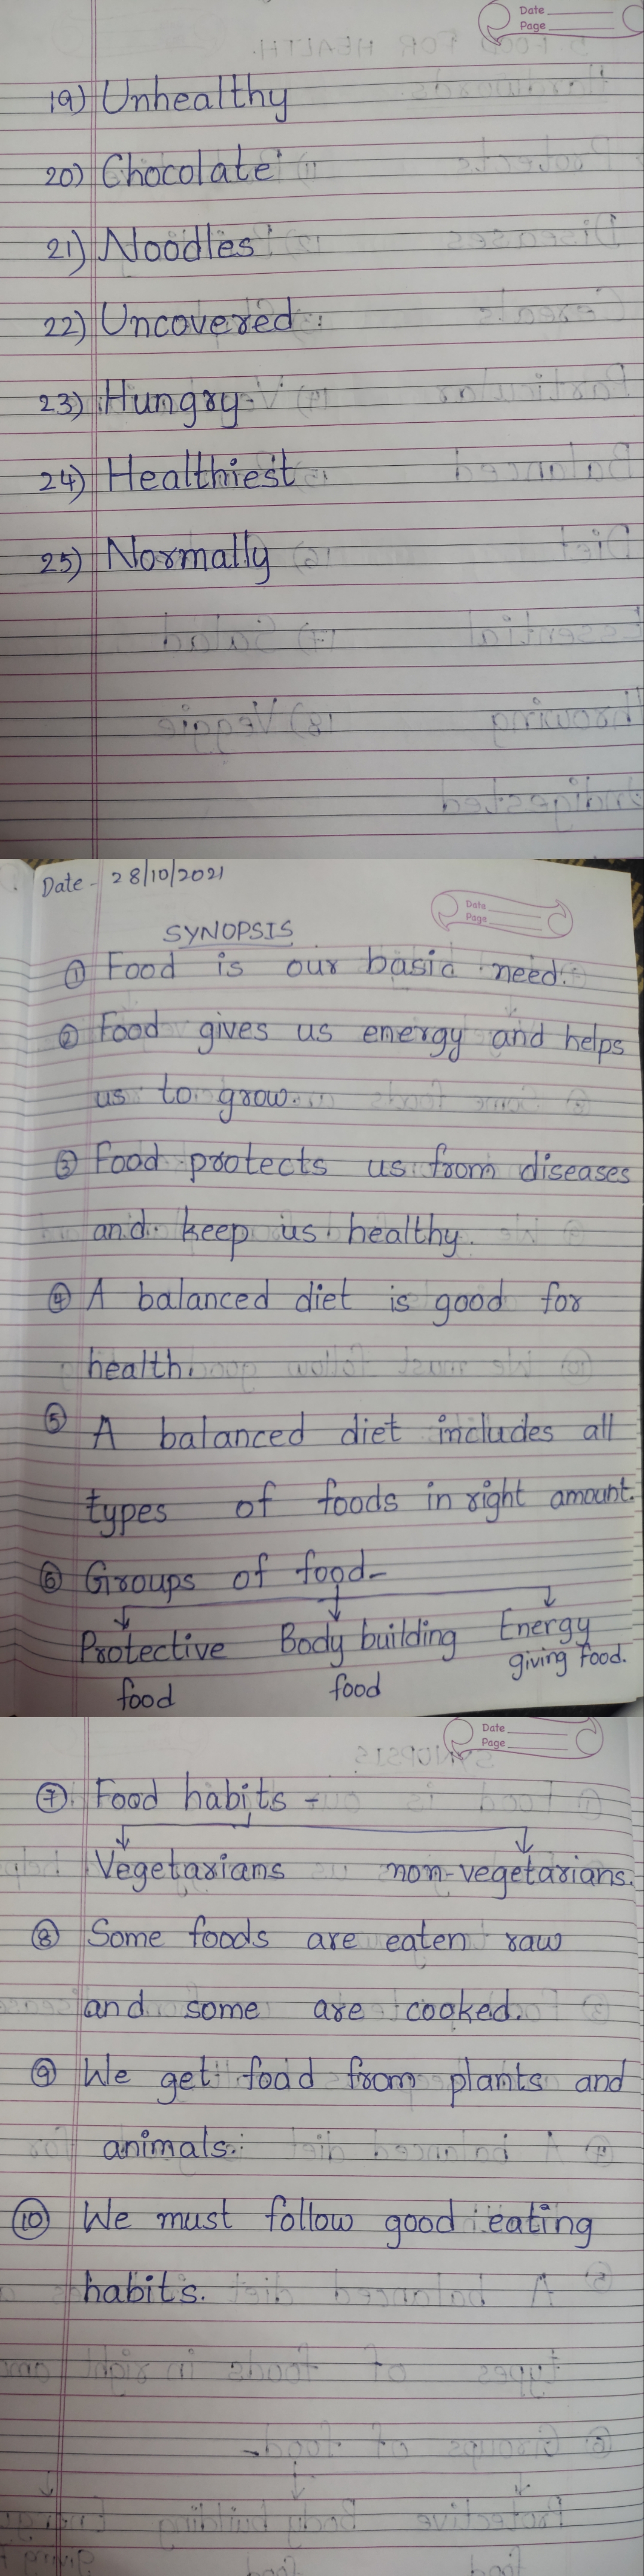 Date
Page
19) Unhealthy
20) Chocolate
21) Noodles
22) Uncovered
23) Hungry
24) Healthiest
25) Normally
Date - 28/10/2021
Date
Page
SYNOPSIS
① Food is our basic need.
② Food gives us energy and helps
us to grow.
③ Food protects us from diseases
and keep us healthy.
④ A balanced diet is good for
health.
⑤ A balanced diet includes all
types of foods in right amount.
⑥ Groups of food-
Protective Body building Energy
food food giving food.
Date
Page
⑦ Food habits -
Vegetarians non-vegetarians.
⑧ Some foods are eaten raw
and some are cooked.
⑨ We get food from plants and
animals.
⑩ We must follow good eating
habits.